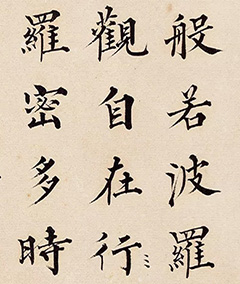 般若波羅
觀自在行
羅密多時